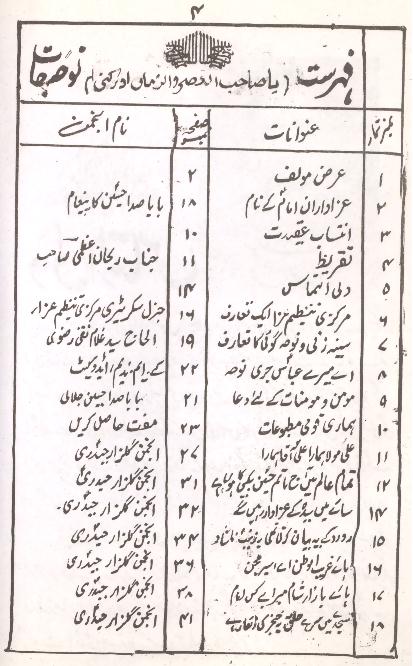 ۴
فہرست (یا صاحب العصر والزماں ادرکنی) نوحہ جات
نمبر شمار عنوانات صفحہ نمبر نام انجمن
۱ عرض مولف ۲
۲ عزاداران امام کے نام ۱۸ بابا صدا حسین کا پیغام
۳ انتساب عقیدت ۱۰
۴ تقریظ ۱۱ جناب ریحان اعظمی صاحب
۵ دلی التماس ۱۴
۶ مرکزی تنظیم عزا ایک تعارف ۱۶ جنرل سکریٹری مرکزی تنظیم عزا
۷ سینہ زنی و نوحہ گوئی کا تعارف ۱۹ الحاج سید غلام نقی رضوی
۸ اے میرے عباس جری نوحہ ۲۲ کے۔ ایم۔ ندیم، ایڈوکیٹ
۹ مومن و مومنات کے لئے دعا ۲۱ بابا صدا حسین جلالی
۱۰ ہماری قومی مطبوعات ۲۳ مفت حاصل کریں
۱۱ علی مولا ہمارا علی آقا ہمارا ۲۷ انجمن گلزار حیدری
۱۲ تمام عالم میں آج ماتم حسین بیکس کا ۳۱ انجمن گلزار حیدری
۱۴ سائے میں کے عزادار ہیں گے ۳۲ انجمن گلزار حیدری۔
۱۵ رو رو کے یہ بیاں کرتی تھی ۳۴ انجمن گلزار حیدری
۱۶ ہائے غریب الوطن اے اسیر محن ۳۶ انجمن گلزار حیدری
۱۷ ہائے بازار شام میرا بے کس امام ۳۸ انجمن گلزار حیدری
۱۸ سجدے میں سر ہے حلق پہ خنجر کی دھار ہے ۴۱ انجمن گلزار حیدری